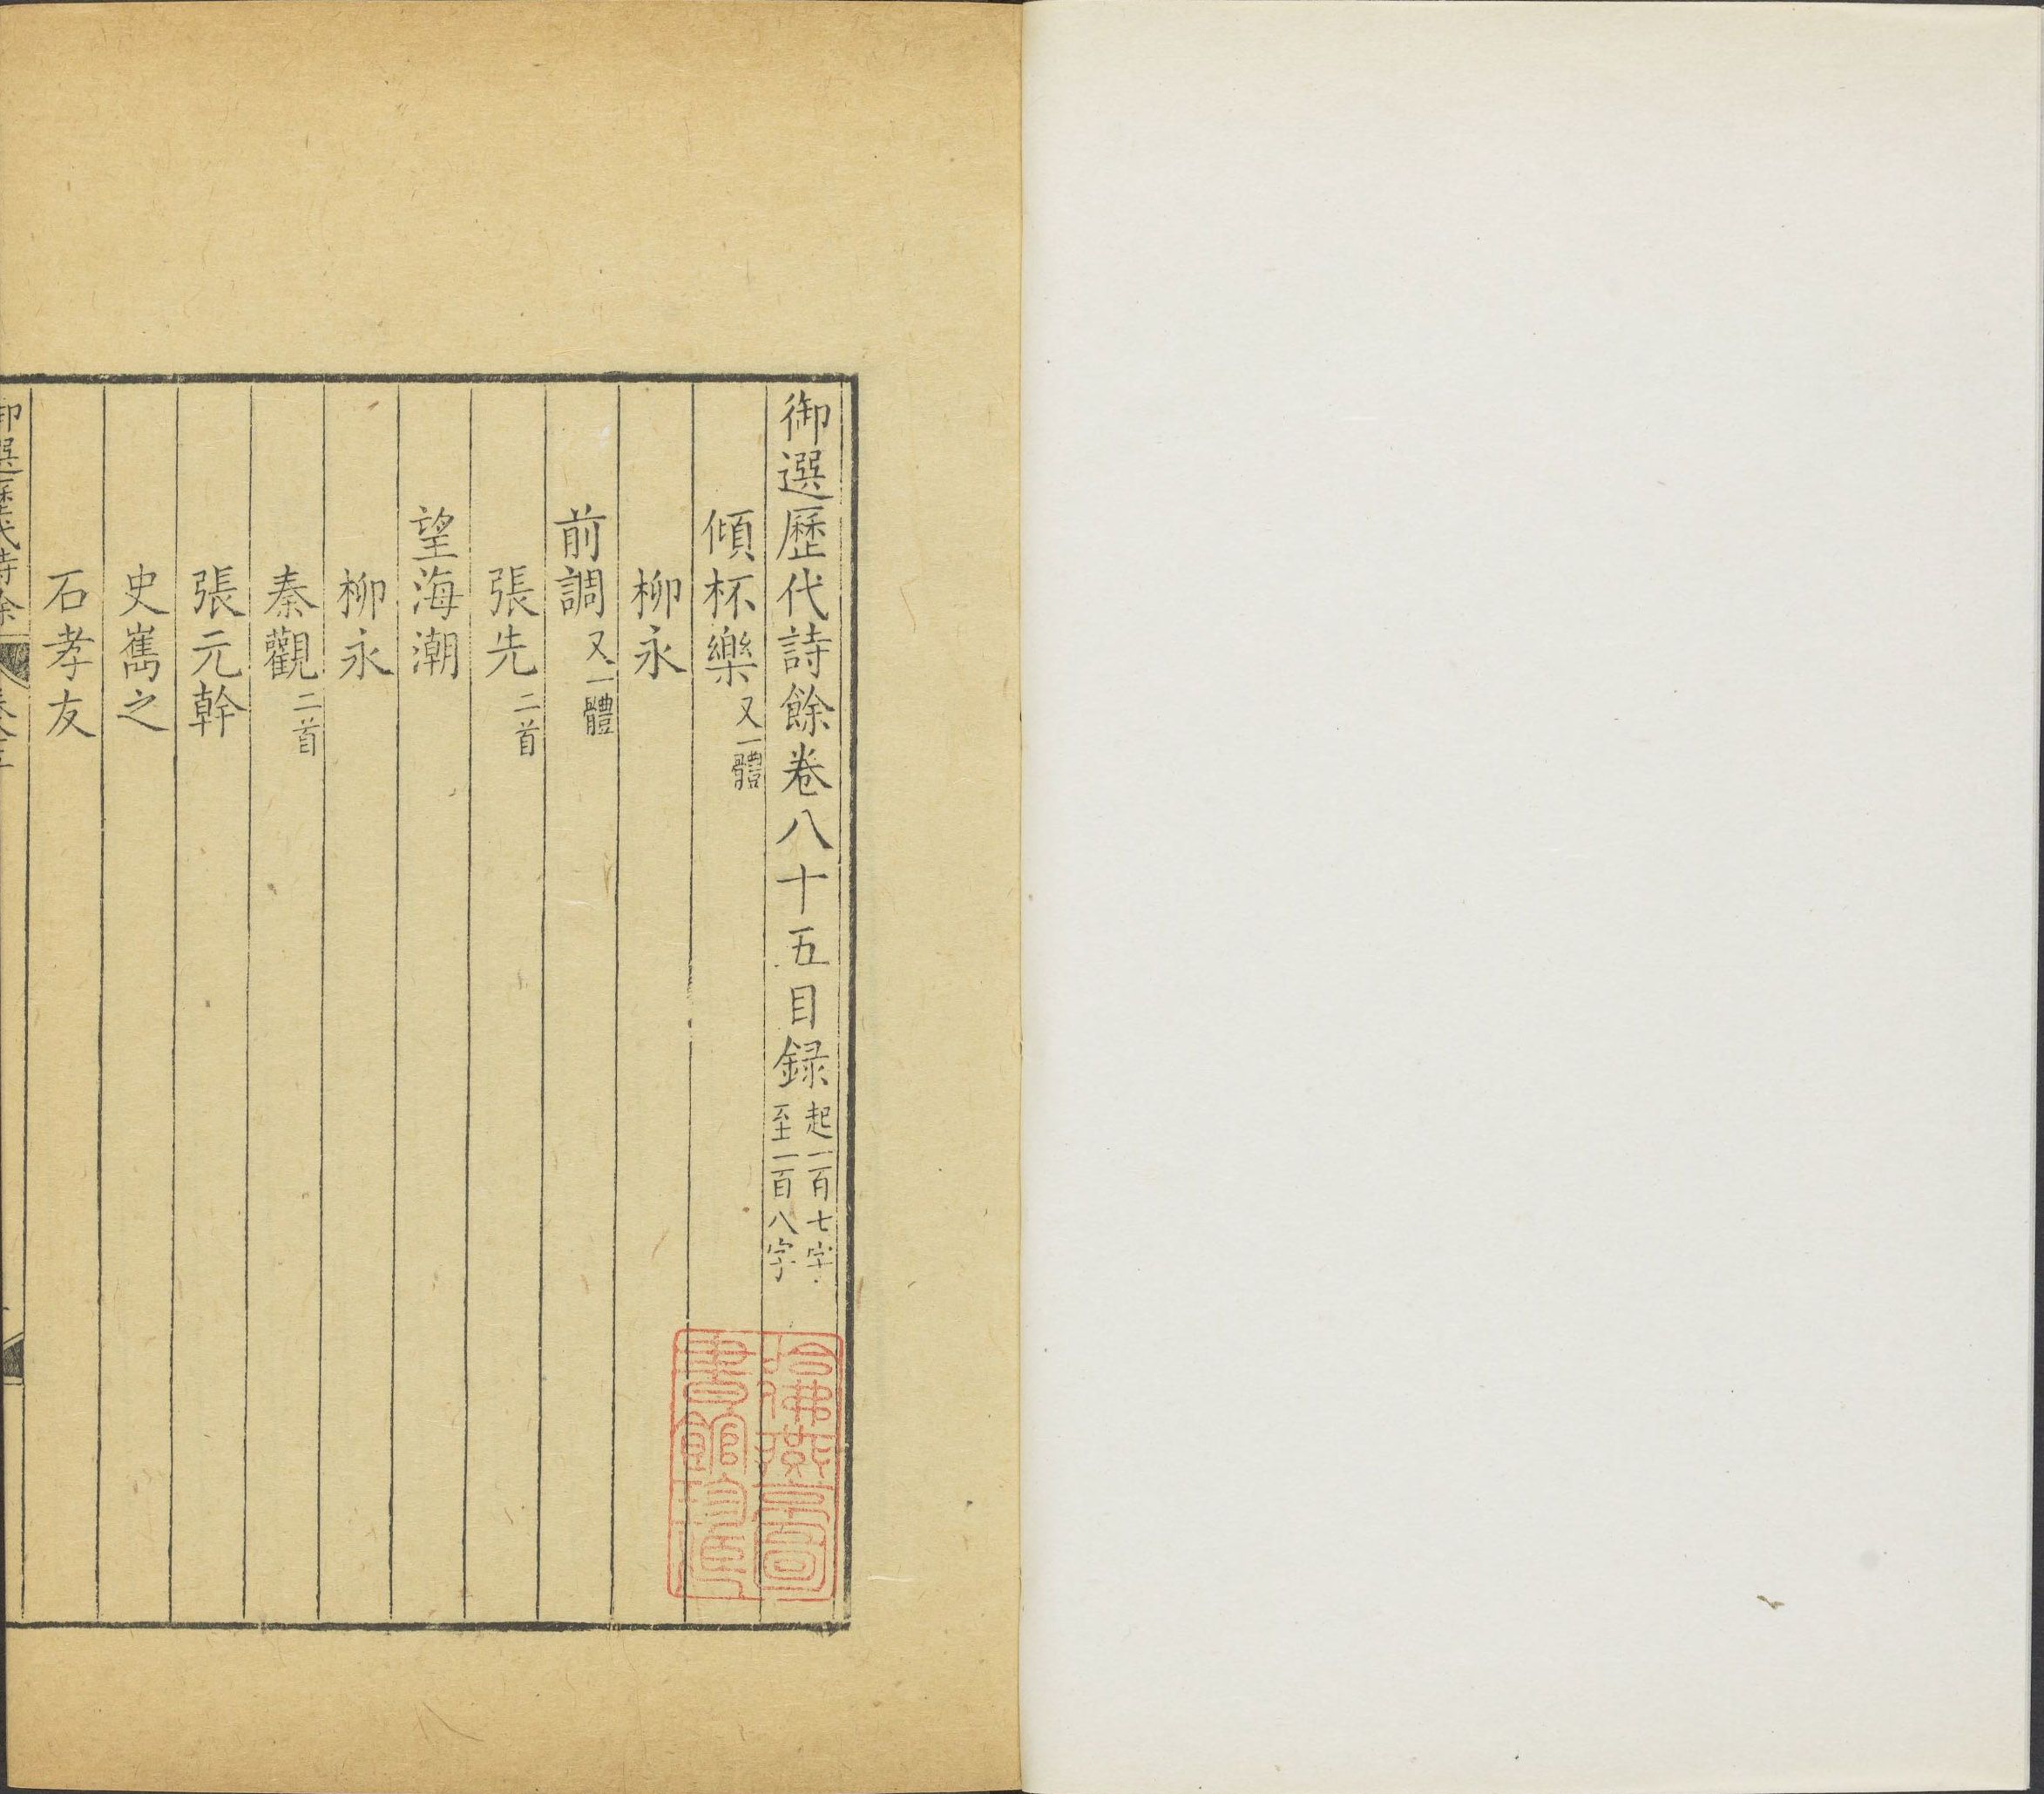 御選歷代詩餘卷八十五目録起一百七字至一百八字
傾杯樂又一體
柳永
前調又一體
張先二首
望海潮
柳永
秦觀二首
張元幹
史雋之
石孝友
御選歷代詩餘
哈佛燕京圖書館珍藏